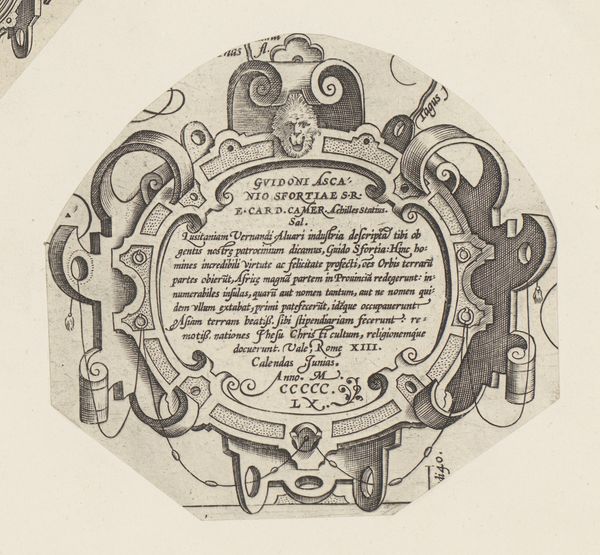 nas
Tagus f
GVIDONI ASCA-
NIO SFORTIAE S·R·
E·CARD·CAMER·Achilles Statius·
Sal·
Lusitaniam Vernandi Aluari industria descriptã tibi ob
gentis nostrę patrocinium dicamus, Guido Sfortia: Hinc ho-
mines incredibili virtute ac felicitate profecti, oẽs Orbis terrarũ
partes obierũt, Africę magnã partem in Prouinciã redegerunt: in-
numerabiles insulas, quarũ aut nomen tantum, aut ne nomen qui-
dem vllum extabat, primi patefecerũt, idẽque occupauerunt:
Asiam terram beatiss. sibi stipendiariam fecerunt: re-
motiss. nationes Jhesu Christi cultum, religionemque
docuerunt. Vale, Rome XIII.
Calendas Junias.
Anno. M D.
CCCCC.
LX.
40.